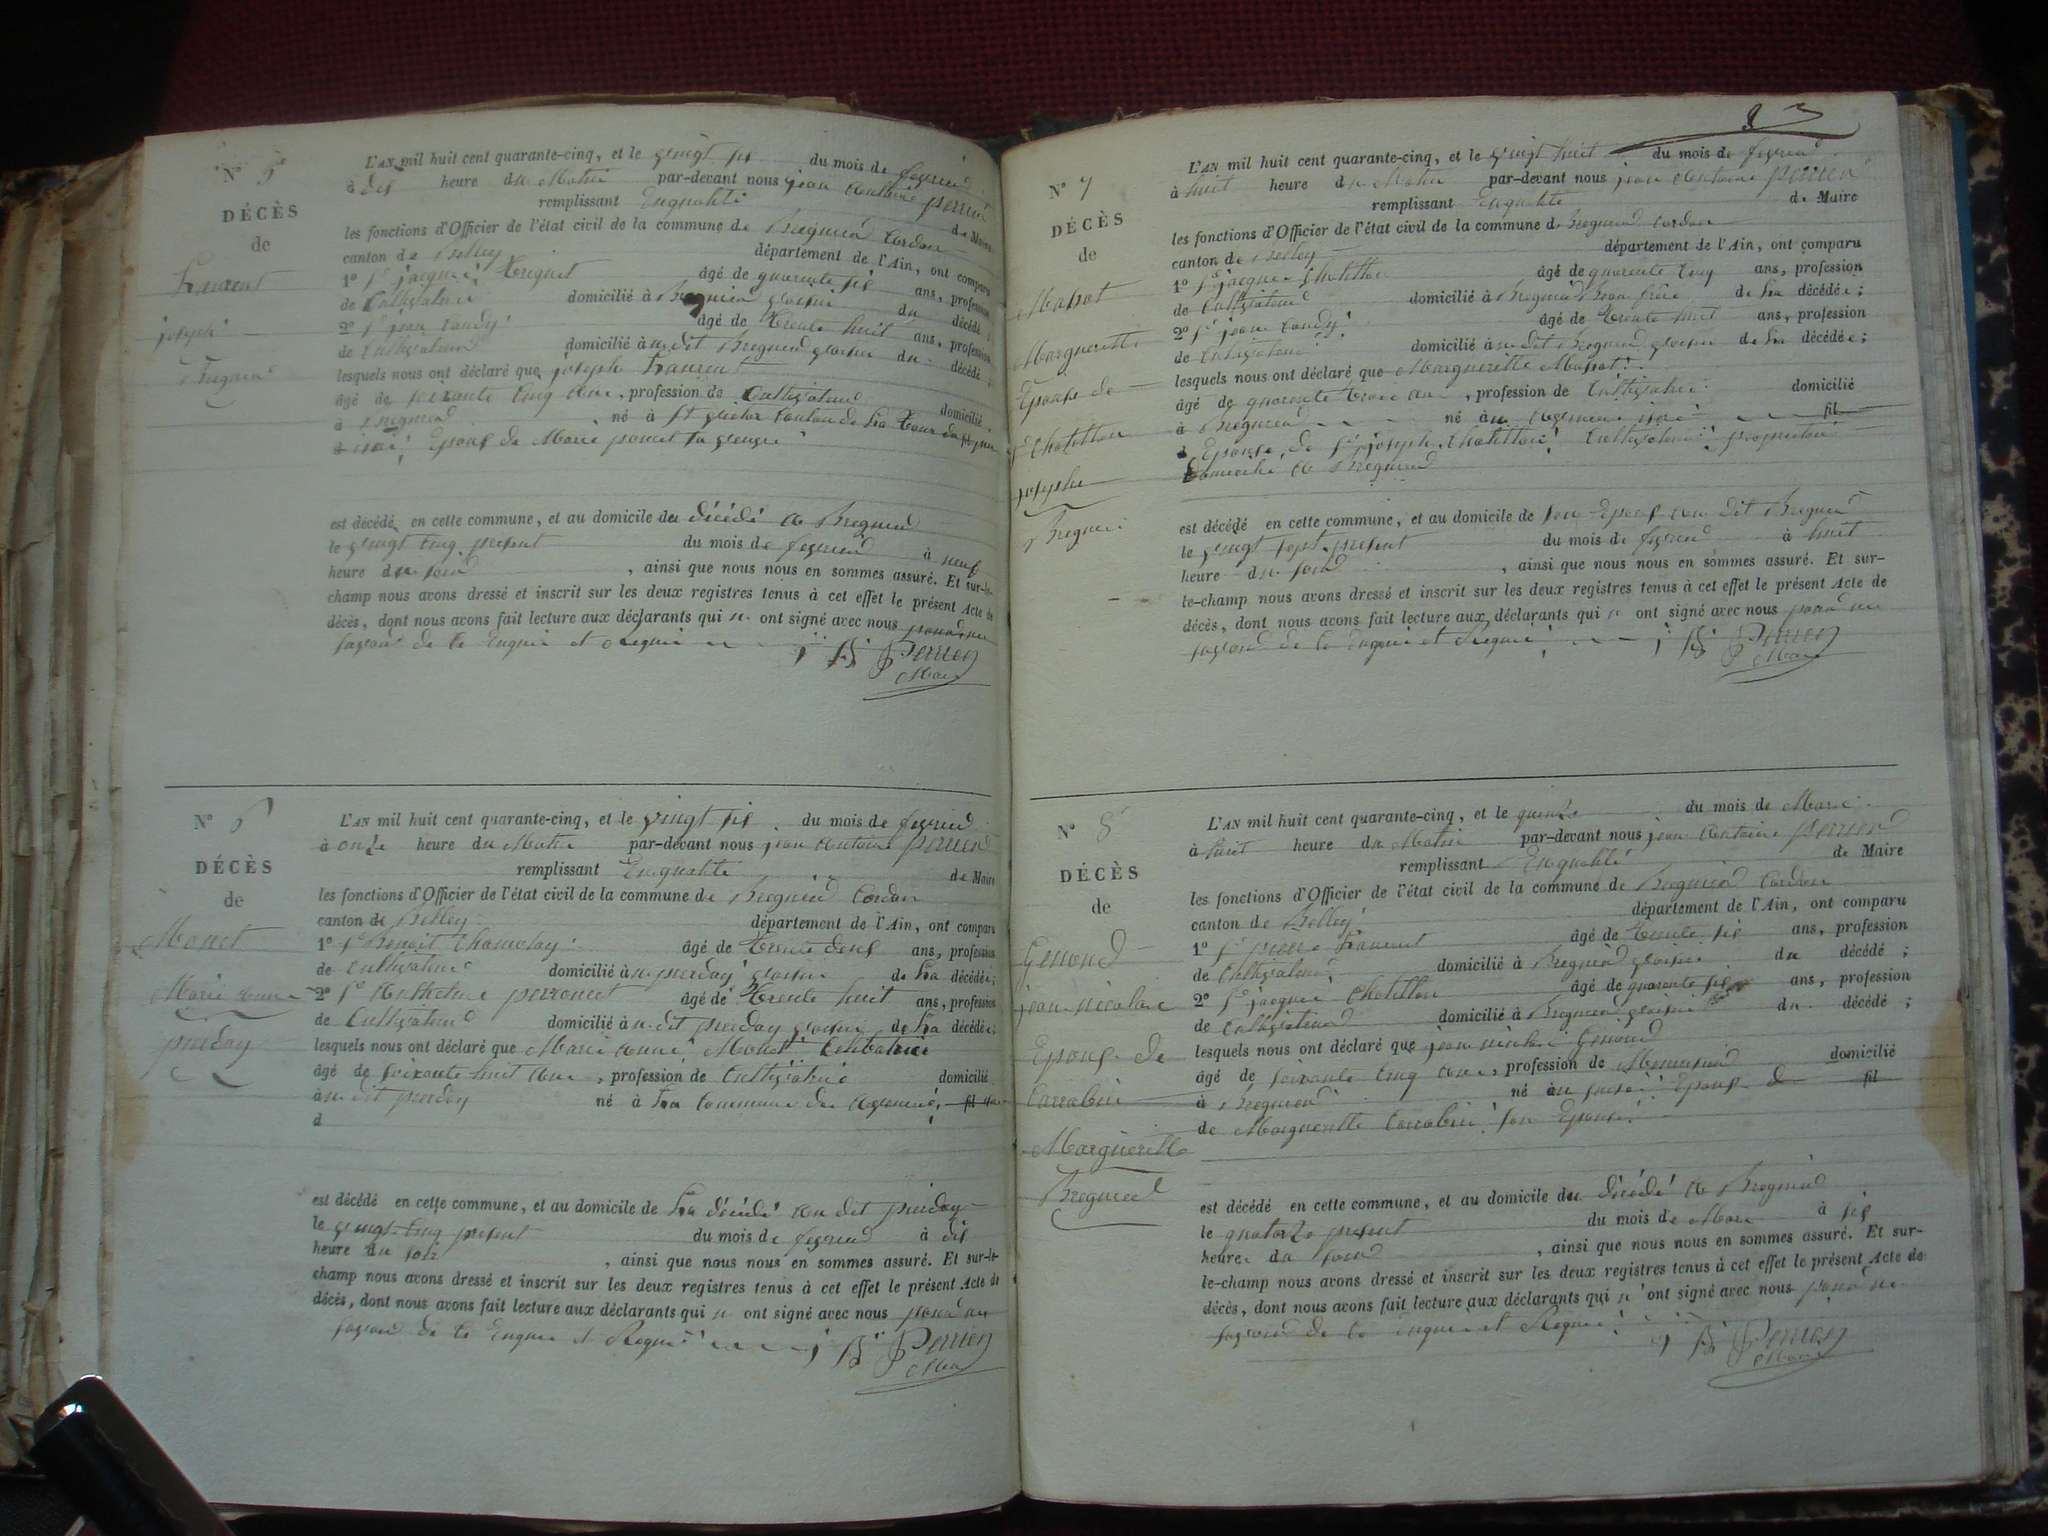 N° 5
DÉCÈS
de
Laurent
joseph
Bregnier
L'AN mil huit cent quarante-cinq, et le vingt six du mois de fevrier
à dix heure du Matin par-devant nous jean Antoine perrier
remplissant Enqualité de Maire
les fonctions d'Officier de l'état civil de la commune de Bregnier Cordon
canton de Belley département de l'Ain, ont comparu
1° Sr jacque âgé de quarante six ans, profession
de Cultivateur domicilié à Bregnier voisin du décédé;
2° Sr jean âgé de trente huit ans, profession
de Cultivateur domicilié au dit Bregnier voisin du décédé;
lesquels nous ont déclaré que joseph Laurent
âgé de soixante cinq ans, profession de Cultivateur domicilié
à Bregnier né à St Canton de La Tour du pin
Epoux de Marie sa
est décédé en cette commune, et au domicile du décédé à Bregnier
le vingt cinq present du mois de fevrier à neuf
heure du soir, ainsi que nous nous en sommes assuré. Et sur-le-
champ nous avons dressé et inscrit sur les deux registres tenus à cet effet le présent Acte de
décès, dont nous avons fait lecture aux déclarants qui n' ont signé avec nous pour ne
savoir de ce Enquis et Requis
Perrier
Maire
N° 6
DÉCÈS
de
Monet
Marie anne
L'AN mil huit cent quarante-cinq, et le vingt six du mois de fevrier
à onze heure du Matin par-devant nous jean Antoine perrier
remplissant Enqualité de Maire
les fonctions d'Officier de l'état civil de la commune de Bregnier Cordon
canton de Belley département de l'Ain, ont comparu
1° Sr Benoit âgé de trente deux ans, profession
de Cultivateur domicilié à voisin de La décédée;
2° Sr Anthelme perroncet âgé de trente huit ans, profession
de Cultivateur domicilié au dit voisin de La décédée;
lesquels nous ont déclaré que Marie anne Monet
âgé de soixante huit ans, profession de Cultivatrice domicilié
au dit né à La Commune de fil
d
est décédé en cette commune, et au domicile de La décédé au dit
le vingt-cinq present du mois de fevrier à dix
heure du soir, ainsi que nous nous en sommes assuré. Et sur-le-
champ nous avons dressé et inscrit sur les deux registres tenus à cet effet le présent Acte de
décès, dont nous avons fait lecture aux déclarants qui n' ont signé avec nous pour ne
savoir de ce Enquis et Requis
Perrier
Maire
N° 7
DÉCÈS
de
Margueritte
Epouse de
Chatillon
josephe
Bregnier
L'AN mil huit cent quarante-cinq, et le vingt huit du mois de fevrier
à huit heure du Matin par-devant nous jean Antoine perrier
remplissant Enqualité de Maire
les fonctions d'Officier de l'état civil de la commune de Bregnier Cordon
canton de Belley département de l'Ain, ont comparu
1° Sr jacque Chatillon âgé de quarante cinq ans, profession
de Cultivateur domicilié à Bregnier Beau frère de La décédée;
2° Sr jean âgé de trente huit ans, profession
de Cultivateur domicilié au dit Bregnier voisin de La décédée;
lesquels nous ont déclaré que Margueritte
âgé de quarante trois ans, profession de Cultivatrice domicilié
à Bregnier né à fil
Epouse de Sr joseph Chatillon Cultivateur proprietaire
Domicilié à Bregnier
est décédé en cette commune, et au domicile de son Epoux au dit Bregnier
le vingt sept present du mois de fevrier à huit
heure du soir, ainsi que nous nous en sommes assuré. Et sur-
le-champ nous avons dressé et inscrit sur les deux registres tenus à cet effet le présent Acte de
décès, dont nous avons fait lecture aux déclarants qui n' ont signé avec nous pour ne
savoir de ce Enquis et Requis
Perrier
Maire
N° 8
DÉCÈS
de
Gimond
jean-nicolas
Epoux de
Carrabin
Margueritte
Bregnier
L'AN mil huit cent quarante-cinq, et le quinze du mois de Mars
à huit heure du Matin par-devant nous jean Antoine perrier
remplissant Enqualité de Maire
les fonctions d'Officier de l'état civil de la commune de Bregnier Cordon
canton de Belley département de l'Ain, ont comparu
1° Sr pierre Laurent âgé de trente six ans, profession
de Cultivateur domicilié à Bregnier voisin du décédé;
2° Sr jacque Chatillon âgé de quarante six ans, profession
de Cultivateur domicilié à Bregnier voisin du décédé;
lesquels nous ont déclaré que jean nicolas Gimond
âgé de soixante cinq ans, profession de Menuisier domicilié
à Bregnier né Epoux d fil
de Margueritte Carrabin son Epouse
est décédé en cette commune, et au domicile du décédé à Bregnier
le quatorze present du mois de Mars à six
heure du soir, ainsi que nous nous en sommes assuré. Et sur-
le-champ nous avons dressé et inscrit sur les deux registres tenus à cet effet le présent Acte de
décès, dont nous avons fait lecture aux déclarants qui n' ont signé avec nous pour ne
savoir de ce enquis et Requis
Perrier
Maire